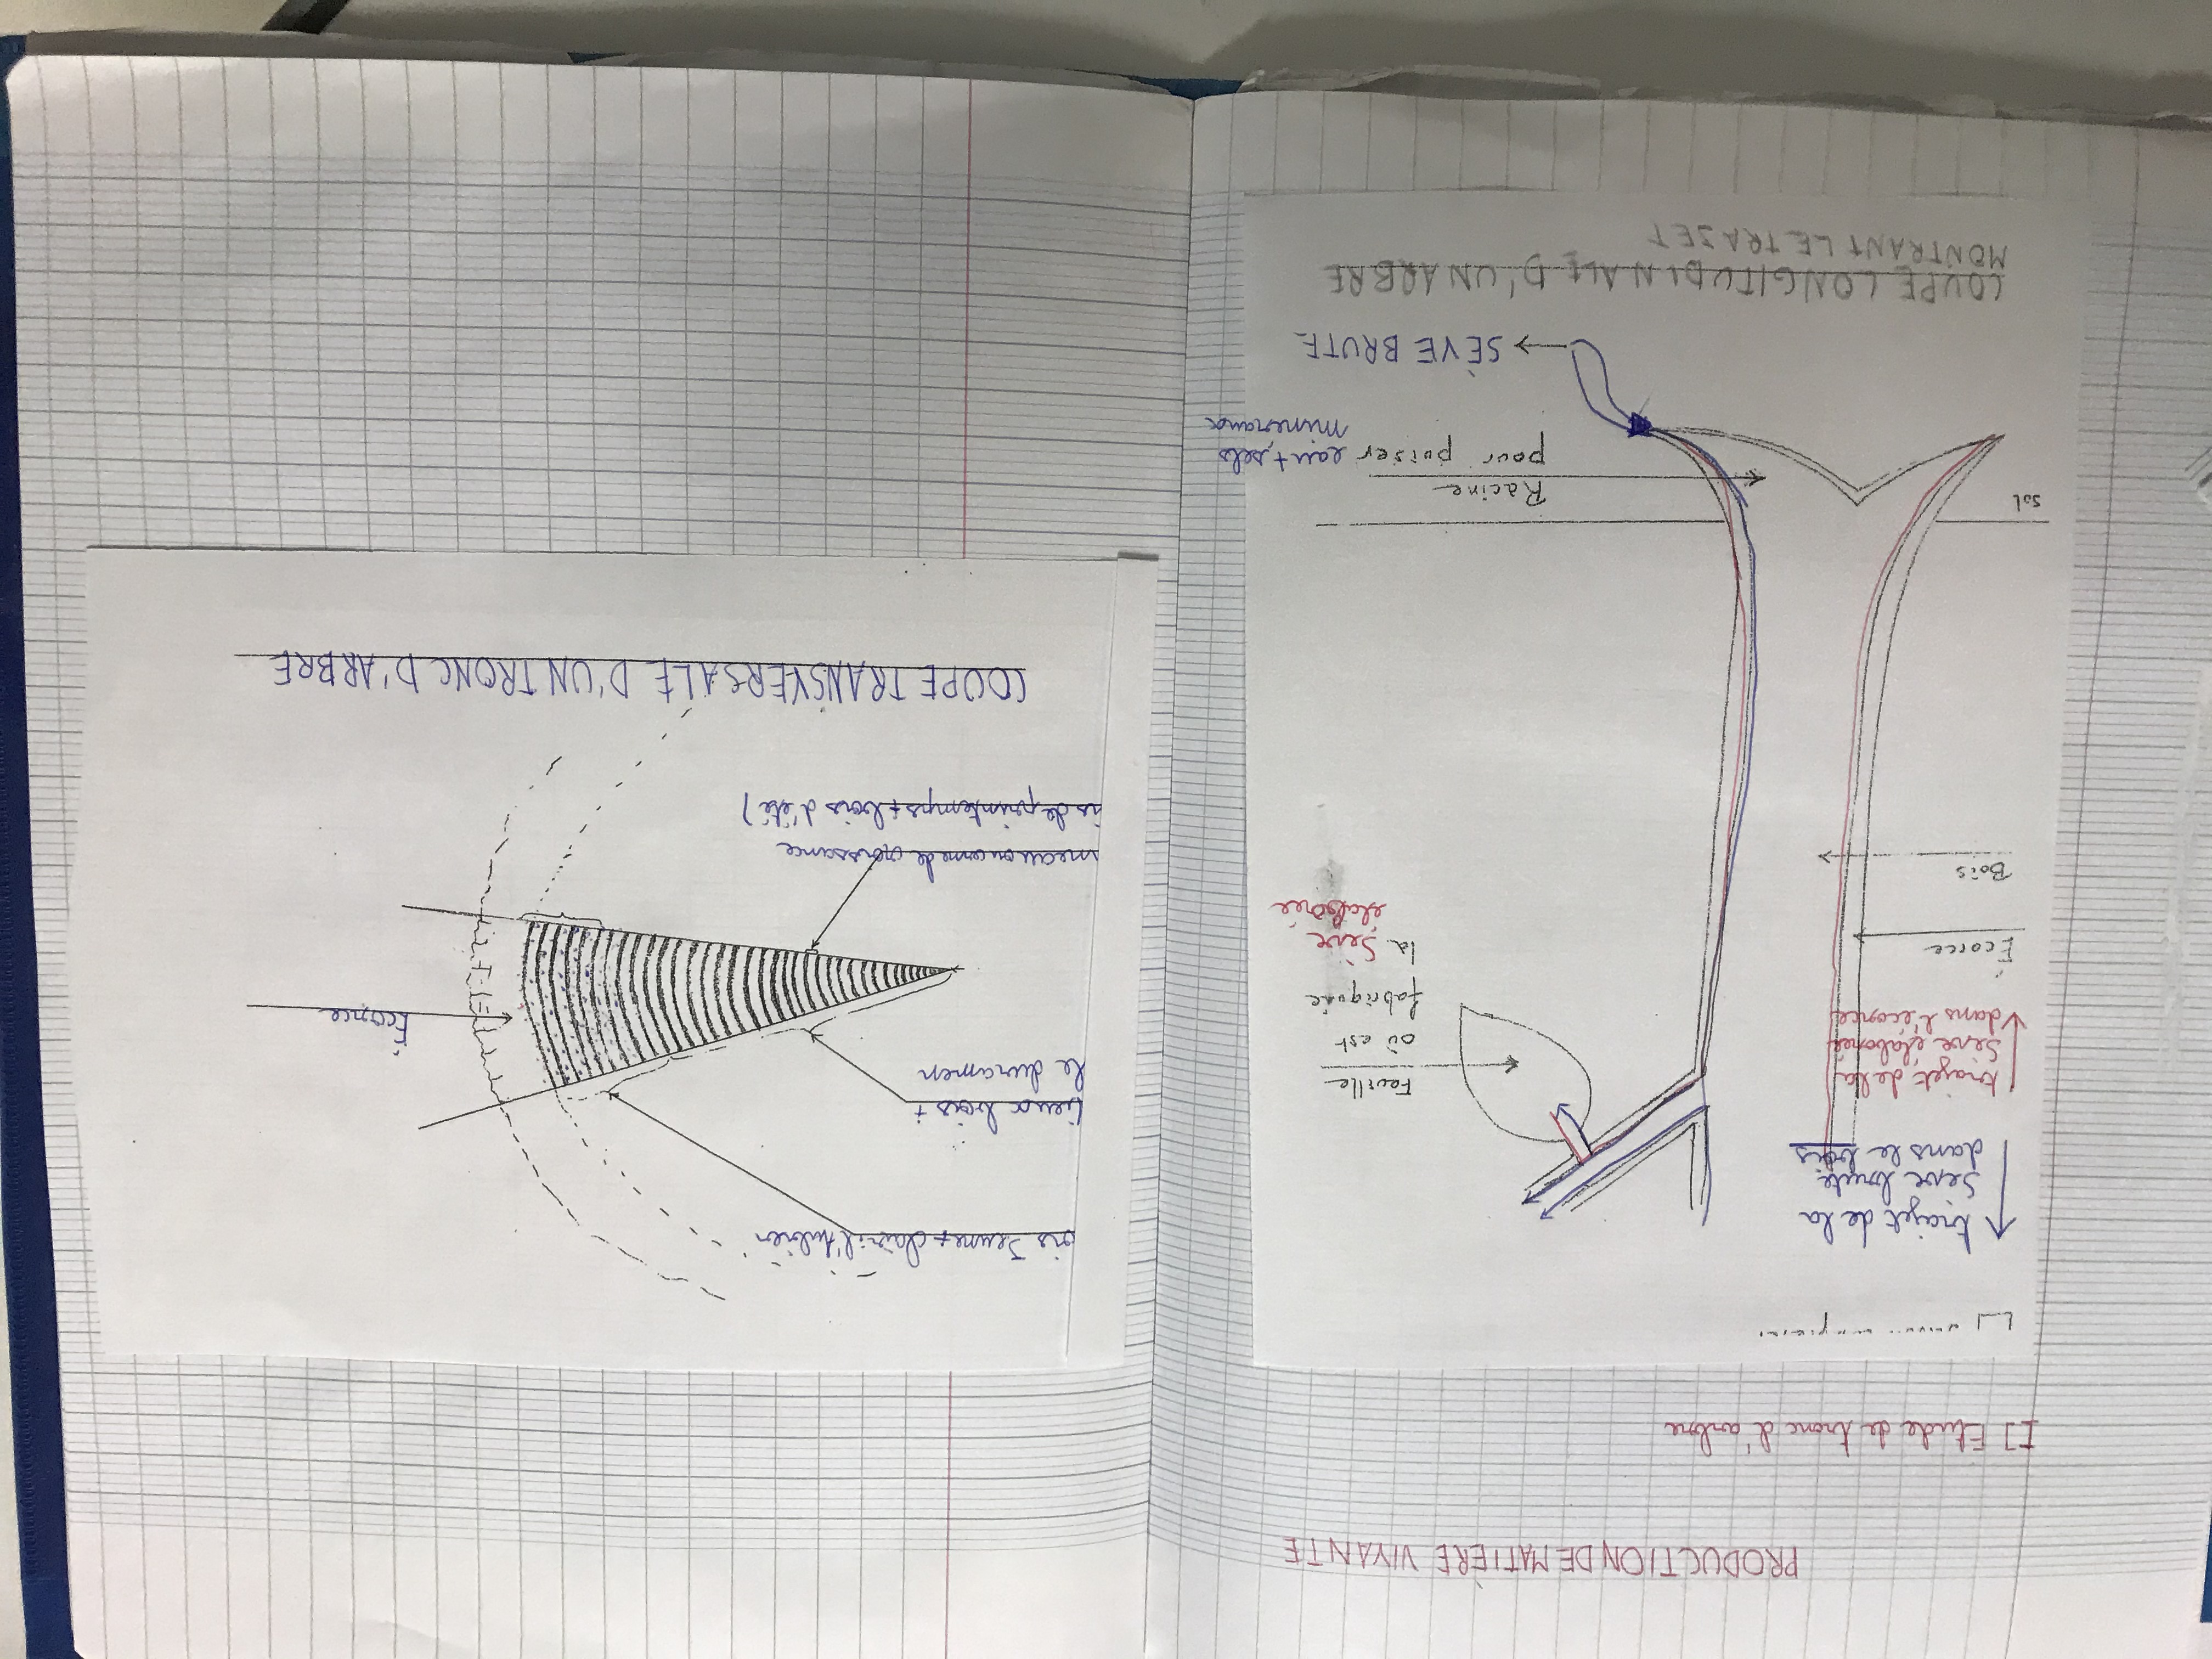 PRODUCTION DE MATIÈRE VIVANTE
I] Etude de tronc d'arbre
trajet de la
Sève brute
dans le bois
trajet de la
Sève élaborée
dans l'écorce
Écorce
Bois
Feuille
où est
fabriquée
la Sève
élaborée
Sol
Racine
pour puiser eau + sels
minéraux
SÈVE BRUTE
COUPE LONGITUDINALE D'UN ARBRE
MONTRANT LE TRAJET
ois Jeune + clair : l'Aubier
ieux bois :
le duramen
Écorce
neau ou cerne de croissance
is de printemps + bois d'été)
COUPE TRANSVERSALE D'UN TRONC D'ARBRE